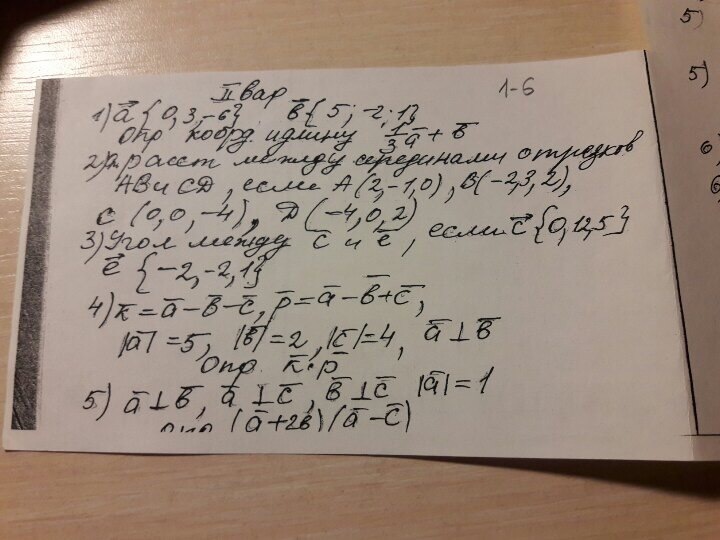 II вар
1-6
1) a⃗ {0, 3, -6} b̅ {5; -2; 1}
Опр. коорд. и длину 1/3 a̅ + b̅
2) расст между серединами отрезков
AB и CD, если A(2,-1,0), B(-2,3,2),
C (0,0,-4), D(-4,0,2)
3) Угол между c̅ и e̅, если c⃗ {0,12,5}
e⃗ {-2,-2,1}
4) k̅ = a̅ - b̅ - c̅, p̅ = a̅ - b̅ + c̅,
|a̅| = 5, |b̅| = 2, |c̅| = 4, a̅ ⊥ b̅
Опр. k̅·p̅
5) a̅ ⊥ b̅, a̅ ⊥ c̅, b̅ ⊥ c̅ |a̅| = 1
(a̅ + 2b̅)(a̅ - c̅)
5)
5)
6
6